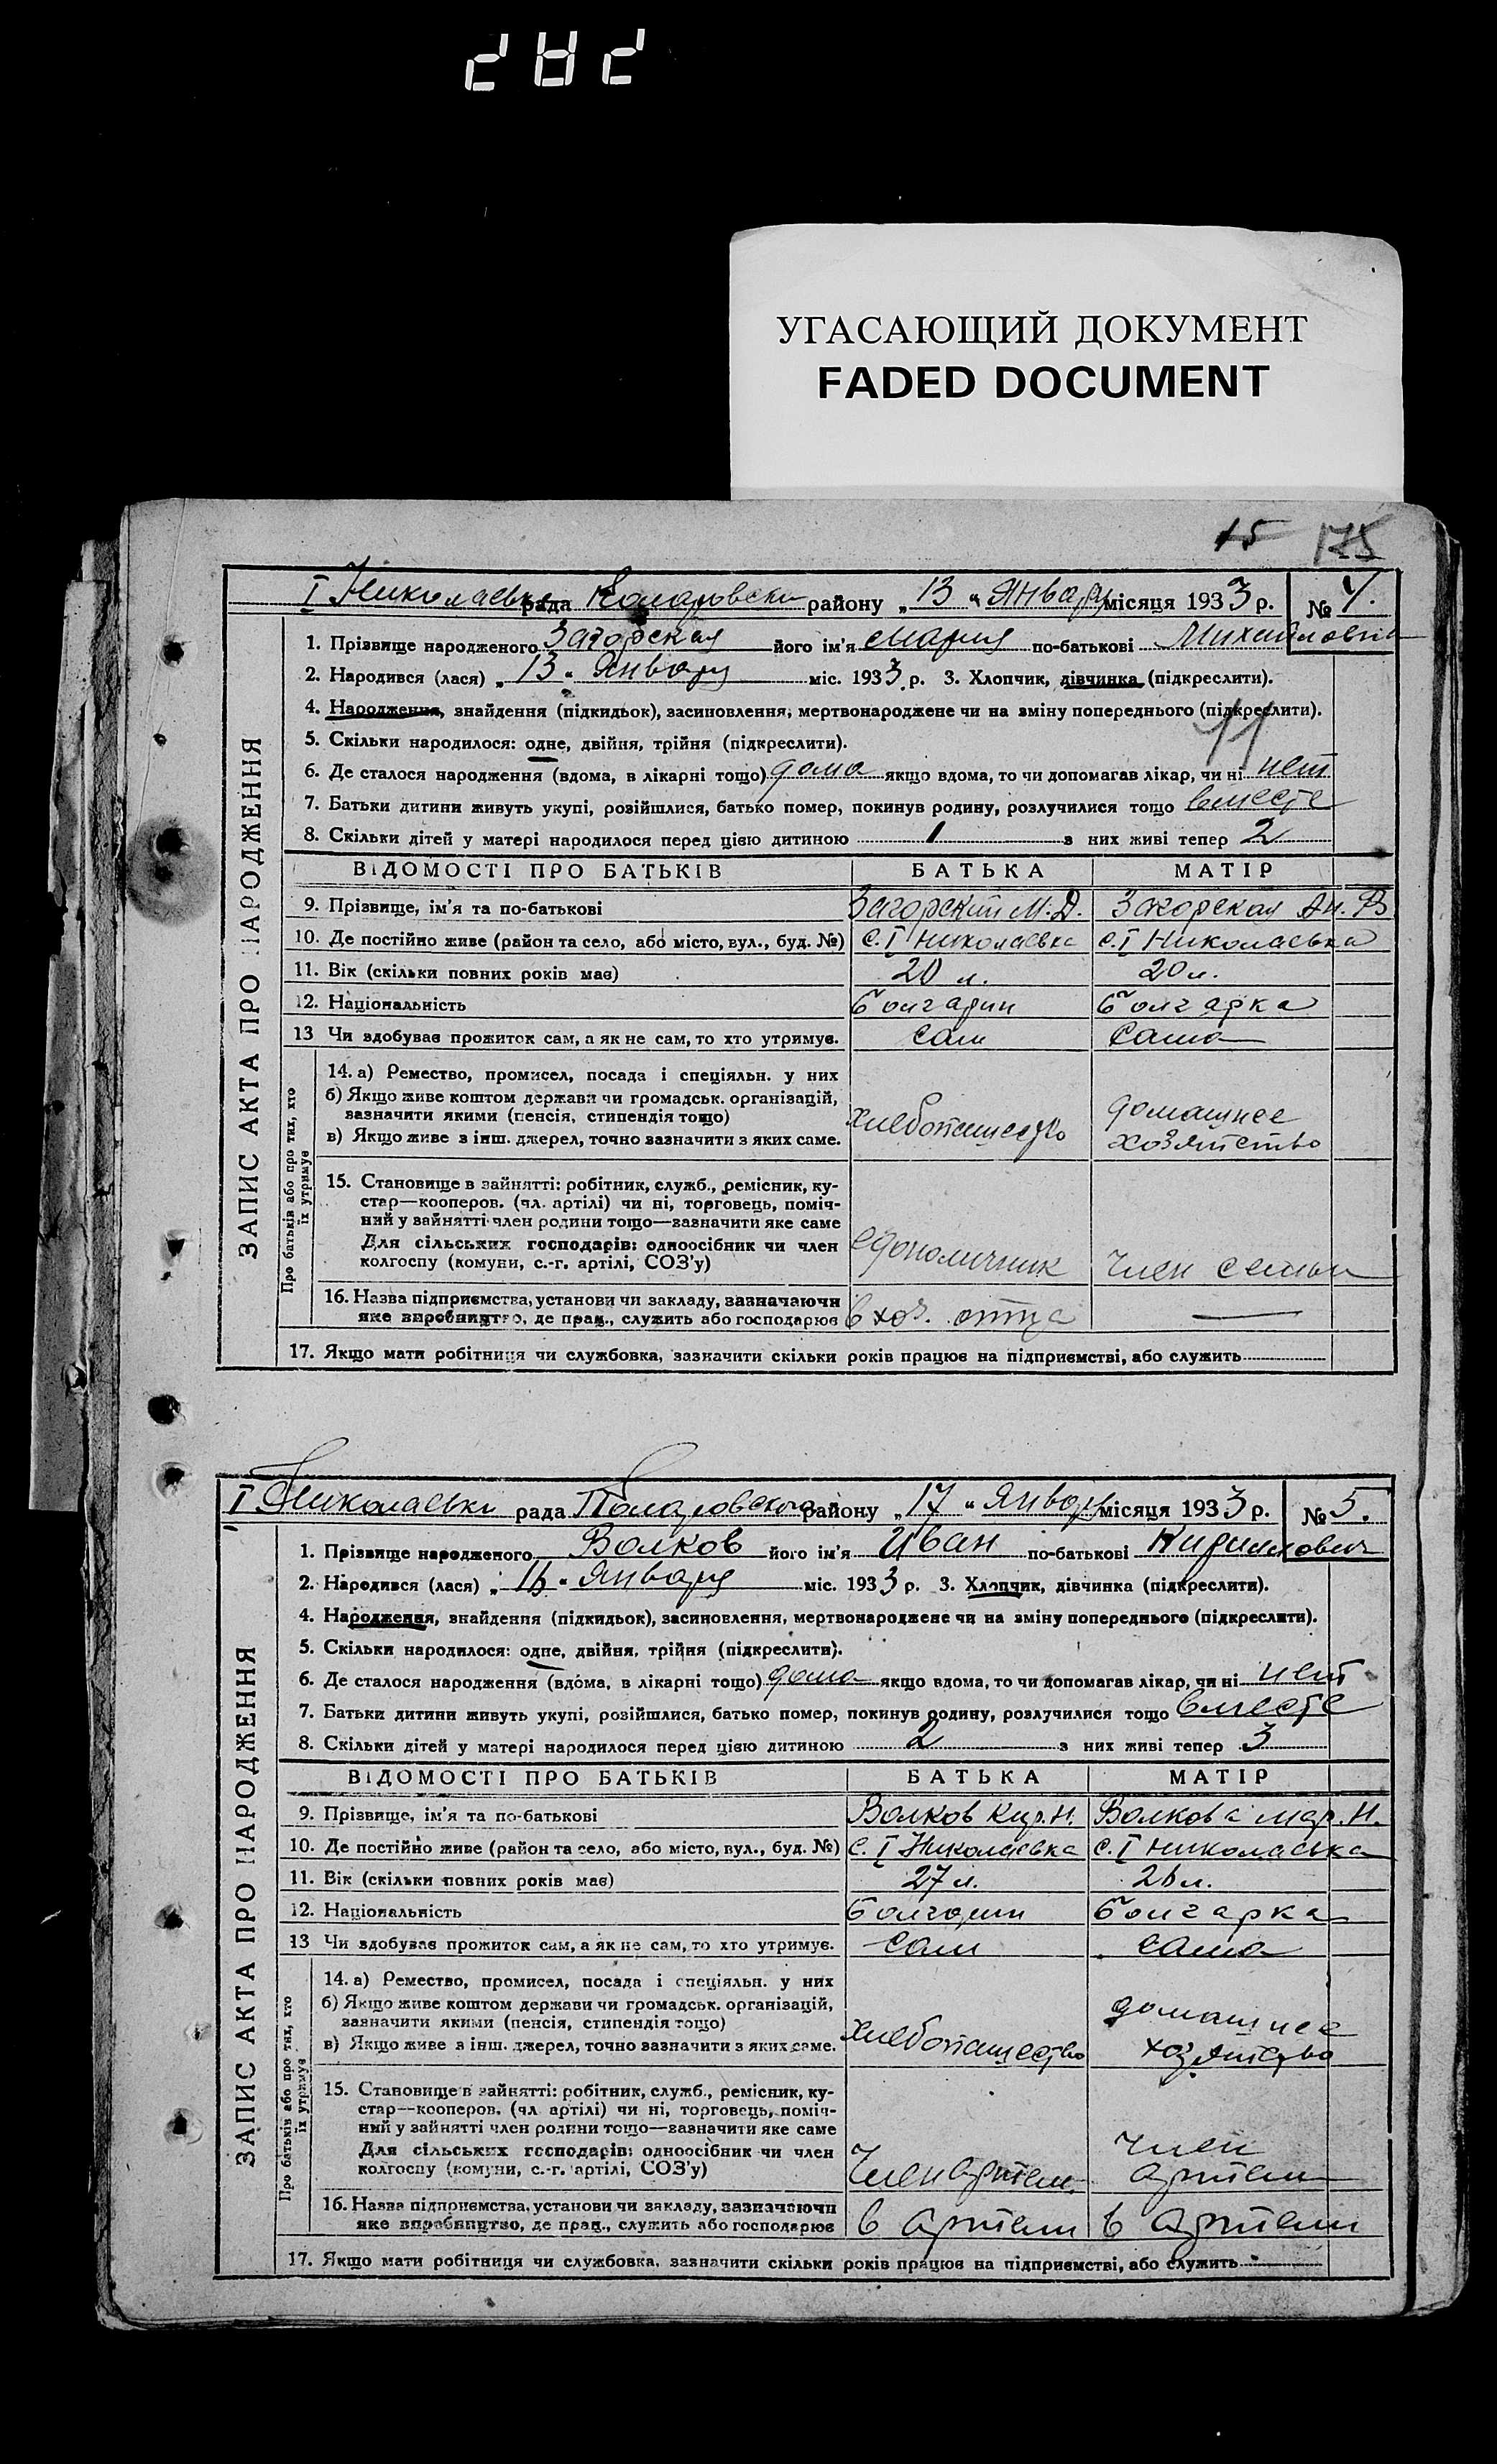 282
УГАСАЮЩИЙ ДОКУМЕНТ
FADED DOCUMENT
15 175
ЗАПИС АКТА ПРО НАРОДЖЕННЯ
I Николаевка рада Коларовски району „13“ Январу місяця 1933 р. № 4.
1. Прізвище народженого Загорская його ім'я Мария по-батькові Михайловна
2. Народився (лася) „13“ Январу міс. 1933 р. 3. Хлопчик, дівчинка (підкреслити).
4. Народження, знайдення (підкидьок), засиновлення, мертвонароджене чи на зміну попереднього (підкреслити).
5. Скільки народилося: одне, двійня, трійня (підкреслити).
11
6. Де сталося народження (вдома, в лікарні тощо) дома якщо вдома, то чи допомагав лікар, чи ні нет
7. Батьки дитини живуть укупі, розійшлися, батько помер, покинув родину, розлучилися тощо вместе
8. Скільки дітей у матері народилося перед цією дитиною 1 з них живі тепер 2
ВІДОМОСТІ ПРО БАТЬКІВ БАТЬКА МАТІР
9. Прізвище, ім'я та по-батькові Загорский М.Д. Загорская Ан. В
10. Де постійно живе (район та село, або місто, вул., буд. №) с. I Николаевка с. I Николаевка
11. Вік (скільки повних років має) 20 л. 20 л.
12. Національність болгарин болгарка
13 Чи здобуває прожиток сам, а як не сам, то хто утримує. сам сама
Про батьків або про тих, хто їх утримує
14. а) Ремество, промисел, посада і спеціяльн. у них
б) Якщо живе коштом держави чи громадськ. організацій,
зазначити якими (пенсія, стипендія тощо)
в) Якщо живе з інш. джерел, точно зазначити з яких саме. хлебопашество домашнее хозяйство
15. Становище в зайнятті: робітник, служб., ремісник, ку-
стар—кооперов. (чл. артілі) чи ні, торговець, поміч-
ний у зайнятті член родини тощо—зазначити яке саме
Для сільських господарів: одноосібник чи член
колгоспу (комуни, с.-г. артілі, СОЗ'у) едиполичник член семьи
16. Назва підприємства, установи чи закладу, зазначаючи
яке виробництво, де прац., служить або господарює в хоз. отца —
17. Якщо мати робітниця чи службовка, зазначити скільки років працює на підприємстві, або служить
ЗАПИС АКТА ПРО НАРОДЖЕННЯ
I Николаевки рада Коларовского району „17“ Январу місяця 1933 р. № 5.
1. Прізвище народженого Волков його ім'я Иван по-батькові Кириллович
2. Народився (лася) „16“ Январу міс. 1933 р. 3. Хлопчик, дівчинка (підкреслити).
4. Народження, знайдення (підкидьок), засиновлення, мертвонароджене чи на зміну попереднього (підкреслити).
5. Скільки народилося: одне, двійня, трійня (підкреслити).
6. Де сталося народження (вдома, в лікарні тощо) дома якщо вдома, то чи допомагав лікар, чи ні нет
7. Батьки дитини живуть укупі, розійшлися, батько помер, покинув родину, розлучилися тощо вместе
8. Скільки дітей у матері народилося перед цією дитиною 2 з них живі тепер 3
ВІДОМОСТІ ПРО БАТЬКІВ БАТЬКА МАТІР
9. Прізвище, ім'я та по-батькові Волков Кир. Н. Волкова Мар. Н.
10. Де постійно живе (район та село, або місто, вул., буд. №) с. I Николаевка с. I Николаевка
11. Вік (скільки повних років має) 27 л. 26 л.
12. Національність болгарин болгарка
13 Чи здобуває прожиток сам, а як не сам, то хто утримує. сам сама
Про батьків або про тих, хто їх утримує
14. а) Ремество, промисел, посада і спеціяльн. у них
б) Якщо живе коштом держави чи громадськ. організацій,
зазначити якими (пенсія, стипендія тощо)
в) Якщо живе з інш. джерел, точно зазначити з яких саме. хлебопашество домашнее хозяйство
15. Становище в зайнятті: робітник, служб., ремісник, ку-
стар—кооперов. (чл артілі) чи ні, торговець, поміч-
ний у зайнятті член родини тощо—зазначити яке саме
Для сільських господарів: одноосібник чи член
колгоспу (комуни, с.-г. артілі, СОЗ'у) член артели член артели
16. Назва підприємства, установи чи закладу, зазначаючи
яке виробництво, де прац., служить або господарює в артели в артели
17. Якщо мати робітниця чи службовка, зазначити скільки років працює на підприємстві, або служить